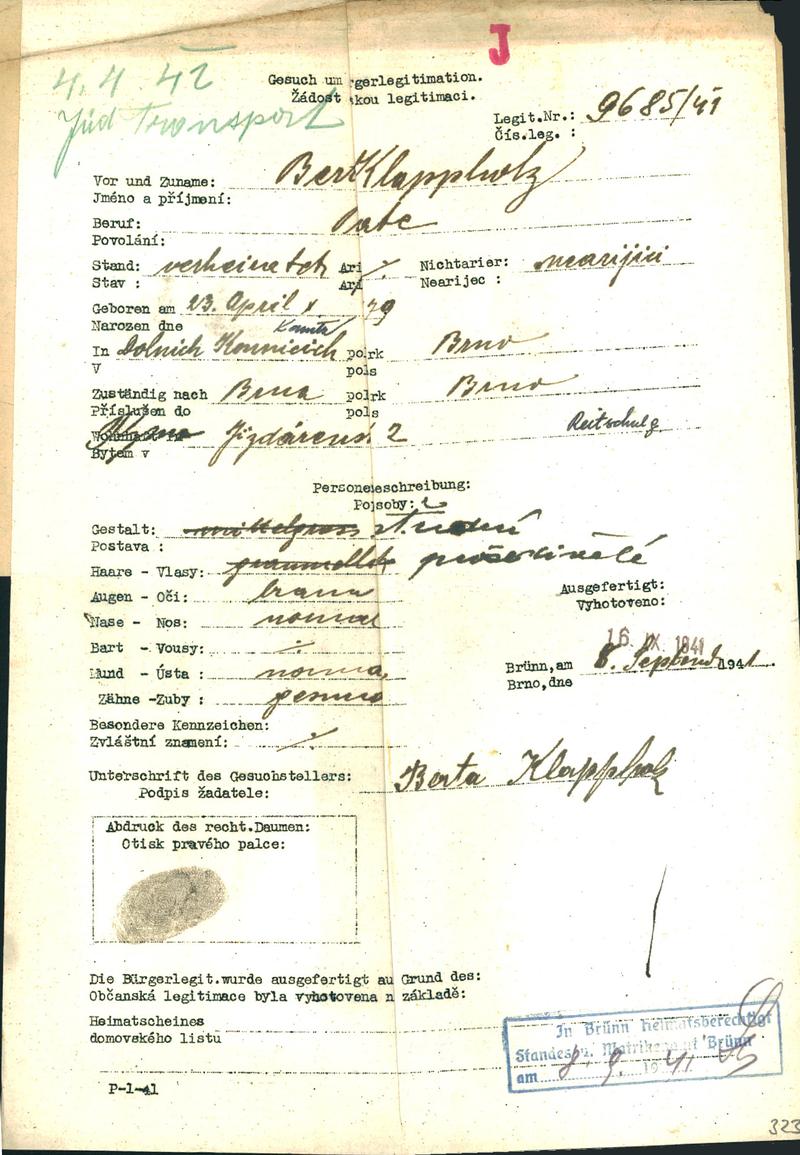 J
4. 4. 42
Jüd Transport
Gesuch um gerlegitimation.
Žádost skou legitimaci.
Legit.Nr.: 9685/41
Čís.leg. :
Vor und Zuname: Bert Klappholz
Jméno a příjmení:
Beruf:
Povolání:
Stand: verheiratet Ari ./. Nichtarier: nearijící
Stav : Ari Nearijec :
Geboren am 23. April 79
Narozen dne Kanitz
In Dolních Kounicích pol rk Brno
V pol s
Zuständig nach Brna pol rk Brno
Příslušen do pol s
Wohnhaft in Jízdárenská 2 Reitschulg
Bytem v
Personeneschreibung:
Po soby:
Gestalt:
Postava : střední
Haare - Vlasy: prošedivělé
Augen - Oči: braun
Nase - Nos: normal
Bart - Vousy: ./.
Mund - Ústa : normal
Zähne -Zuby :
Ausgefertigt:
Vyhotoveno:
16. IX. 1941
Brünn,am 8. September 1941.
Brno,dne
Besondere Kennzeichen:
Zvláštní znamení: ./.
Unterschrift des Gesuchstellers: Berta Klappholz
Podpis žadatele:
Abdruck des recht.Daumen:
Otisk pravého palce:
Die Bürgerlegit.wurde ausgefertigt au Grund des:
Občanská legitimace byla vyhotovena n základě:
Heimatscheines
domovského listu
In Brünn heimatsberechtigt
Standes- u. Matrikenamt Brünn
am 8. 9. 1941
P-1-41
323